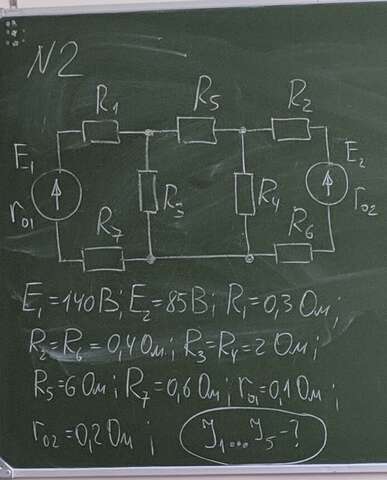 N2
R1 R5 R2
E1 E2
R3 R4
r01 r02
R7 R6
E1=140В; E2=85В; R1=0,3 Ом;
R2=R6=0,4 Ом; R3=R4=2 Ом;
R5=6 Ом; R7=0,6 Ом; r01=0,1 Ом;
r02=0,2 Ом; I1...I5-?